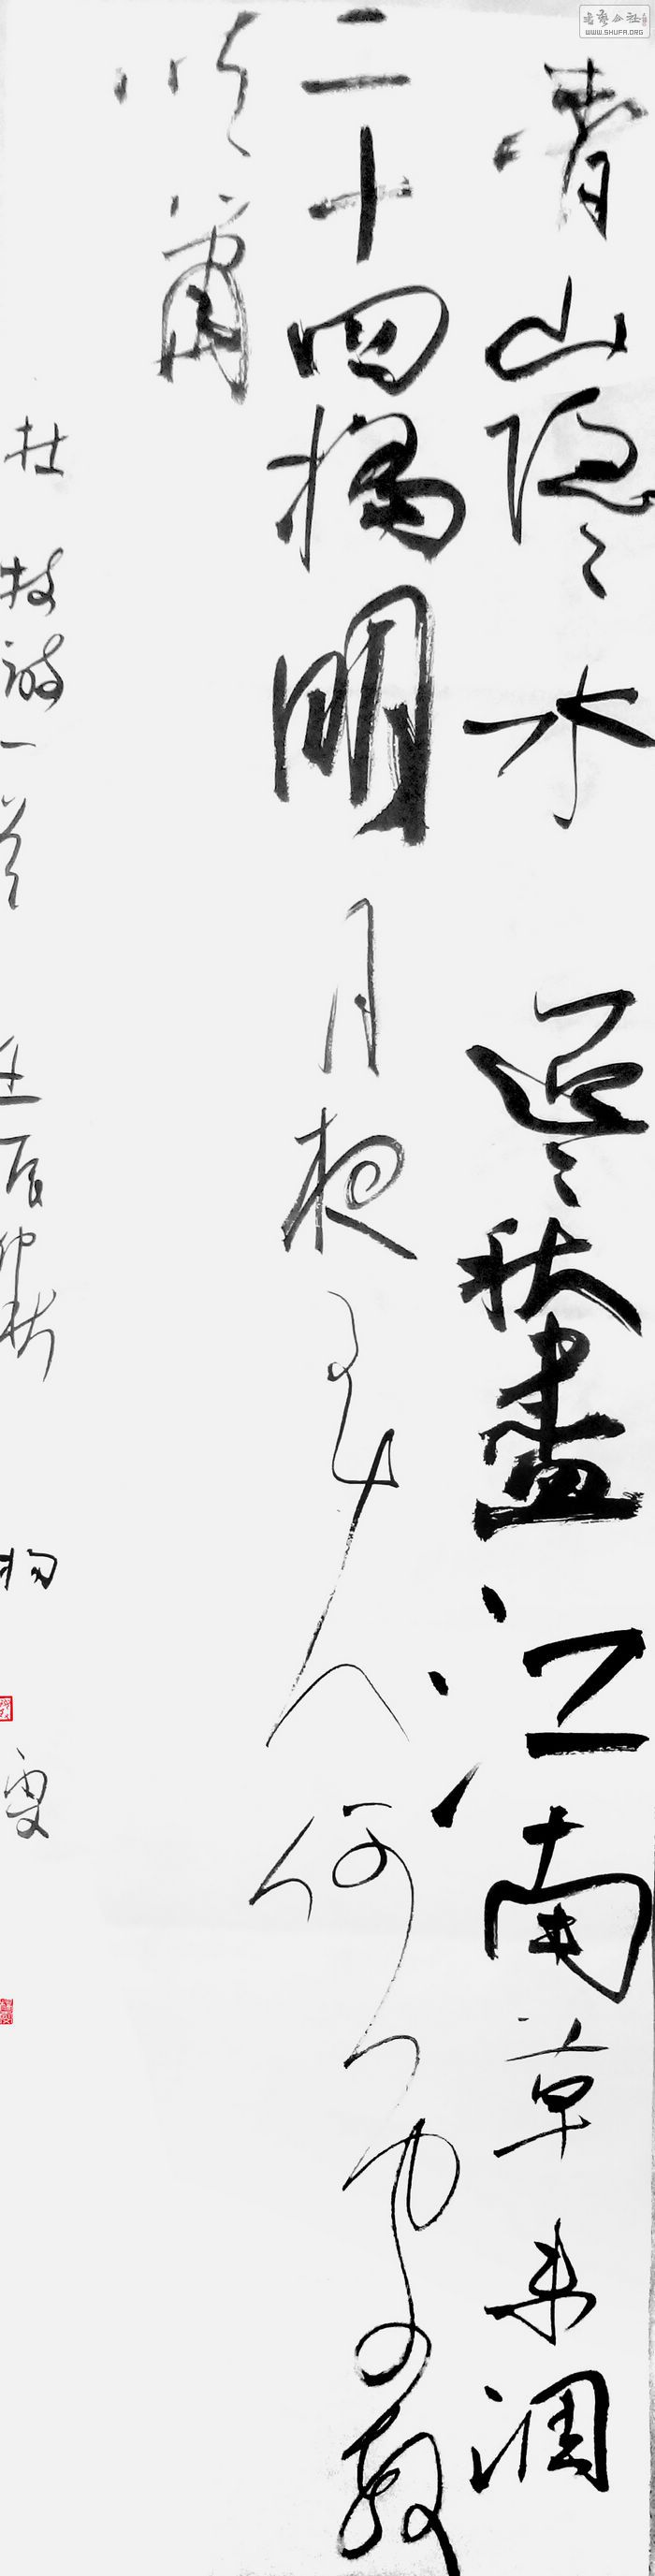 青山隐隐水迢迢秋尽江南草未凋
二十四桥明月夜玉人何处教
吹箫
杜牧诗一首 壬辰仲秋
WWW.SHUFA.ORG